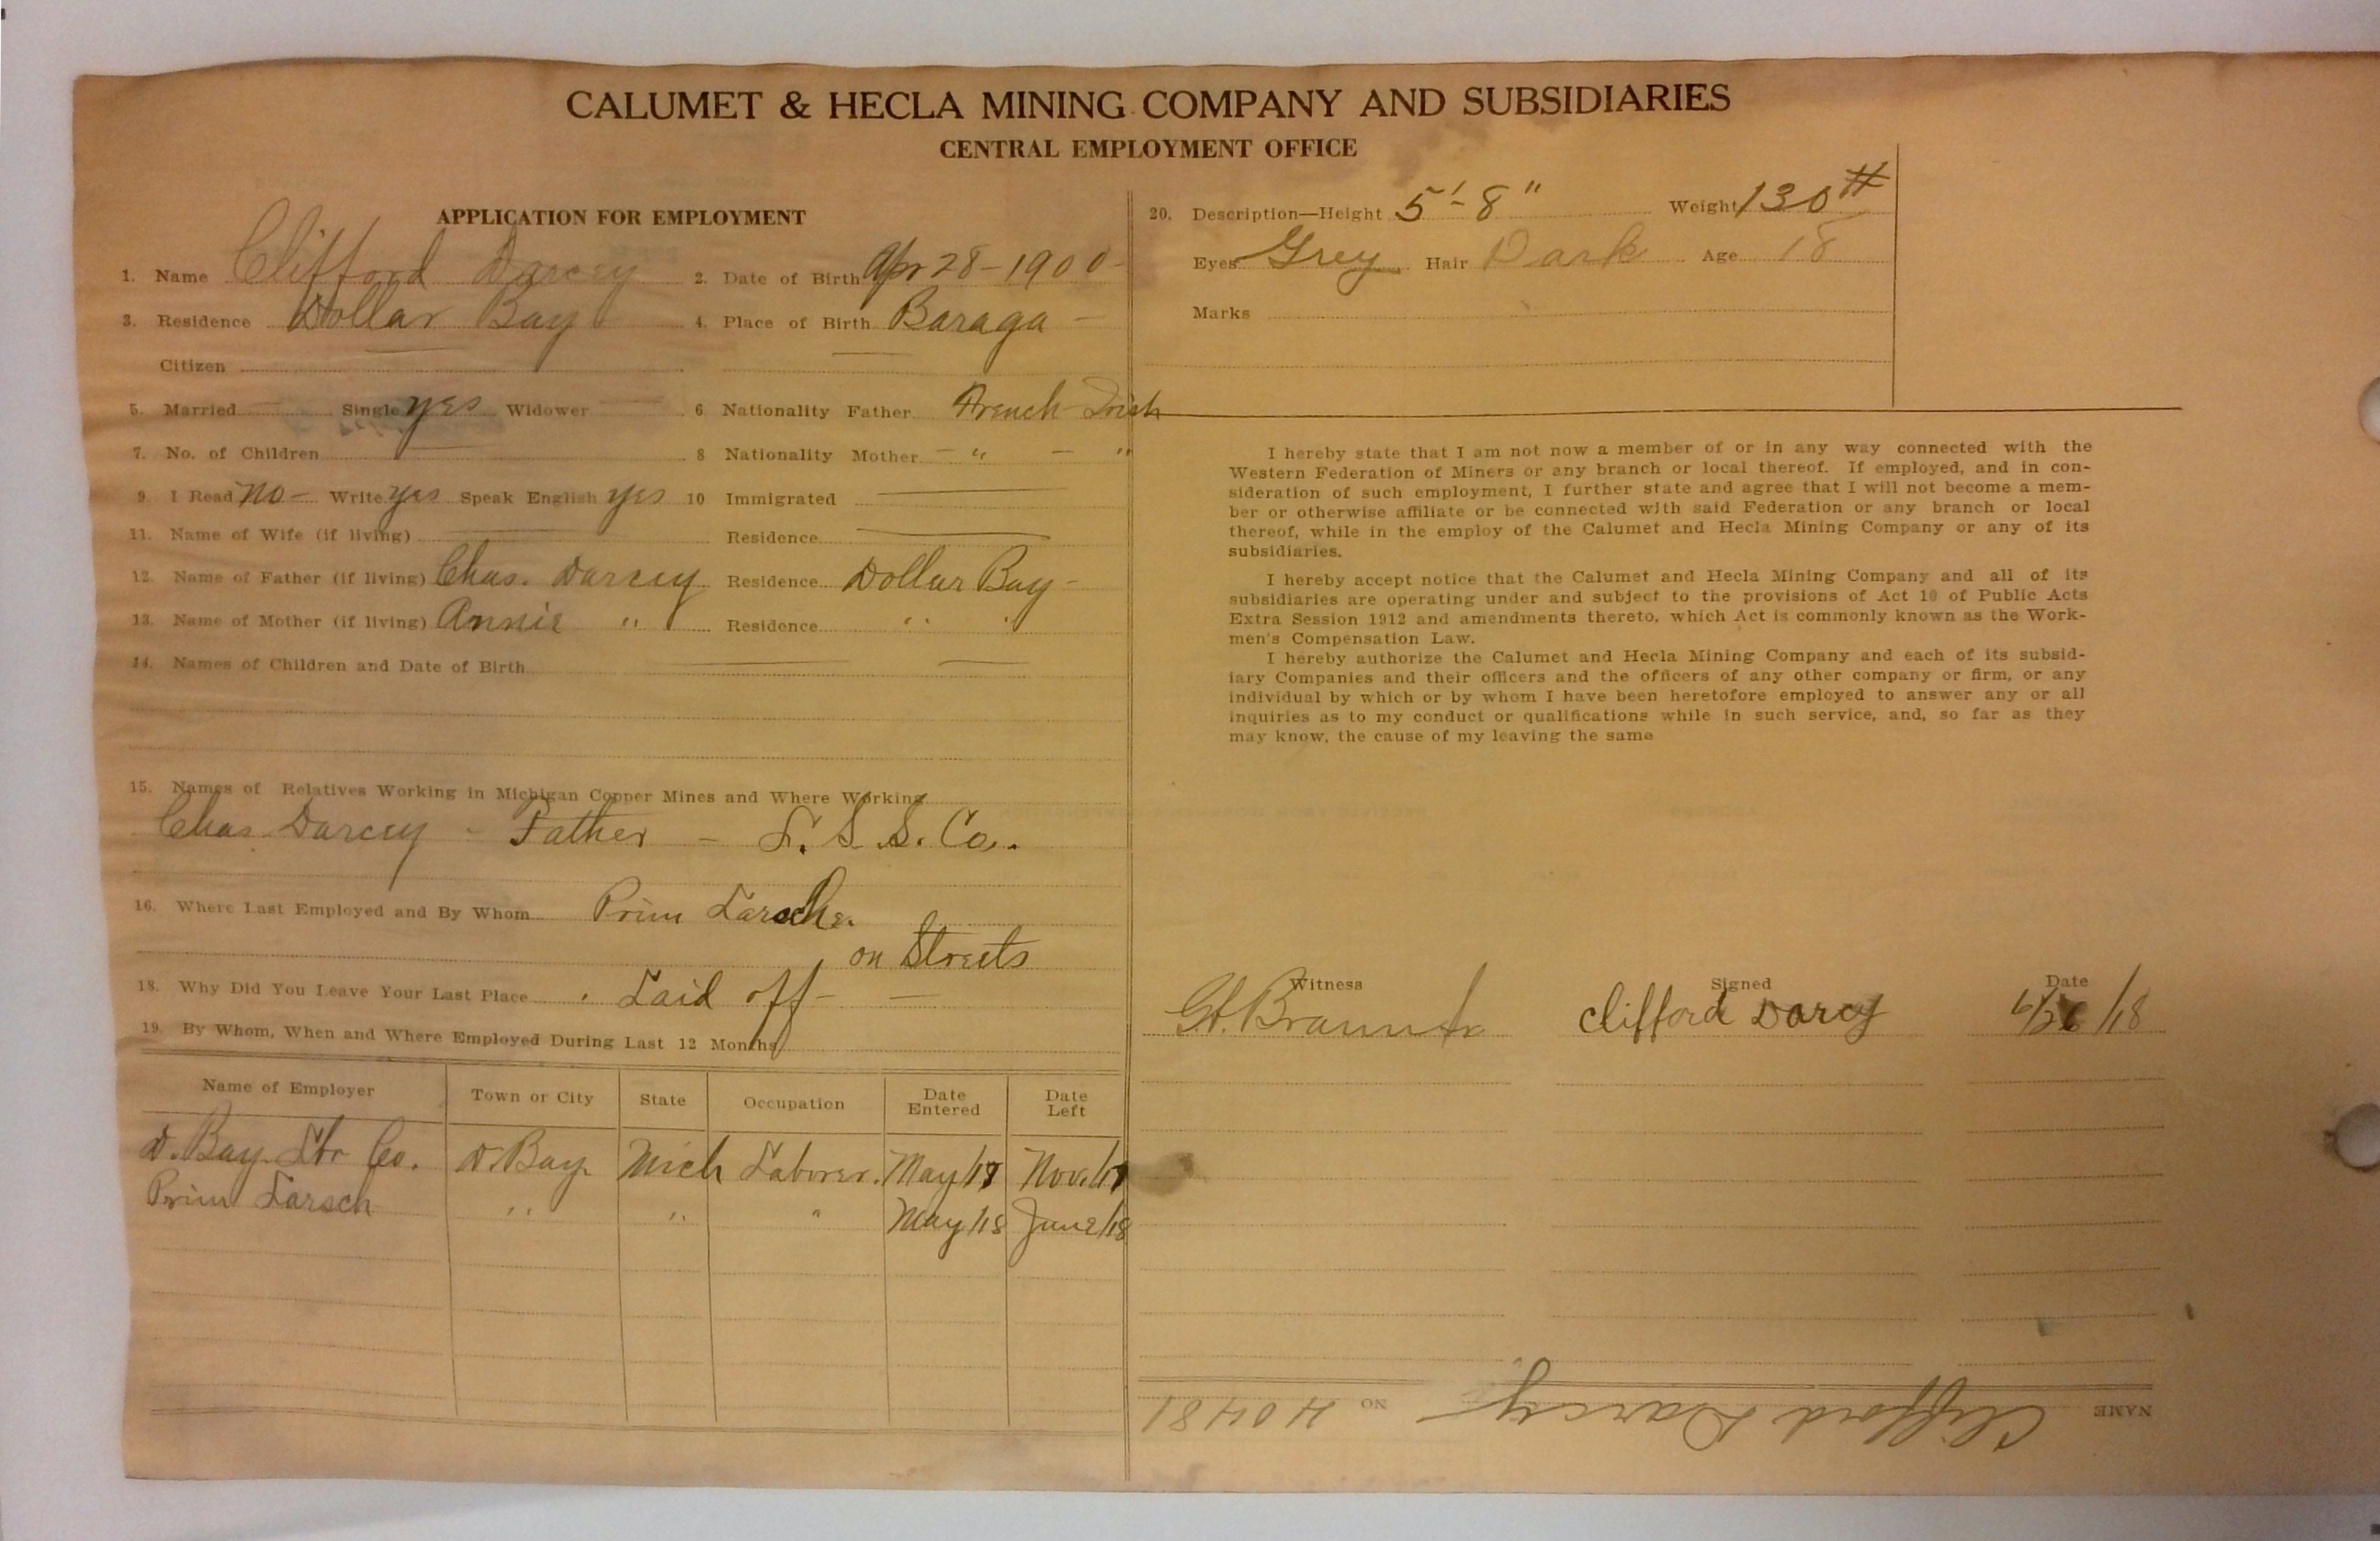 CALUMET & HECLA MINING COMPANY AND SUBSIDIARIES
CENTRAL EMPLOYMENT OFFICE
APPLICATION FOR EMPLOYMENT
1. Name Clifford Darcey 2. Date of Birth Apr 28-1900-
3. Residence Dollar Bay 4. Place of Birth Baraga -
Citizen
5. Married Single yes Widower 6 Nationality Father French-Irish
7. No. of Children 8 Nationality Mother - " - "
9. I Read no - Write yes Speak English yes 10 Immigrated
11. Name of Wife (if living) Residence
12. Name of Father (if living) Chas. Darcey Residence Dollar Bay -
13. Name of Mother (if living) Annie " Residence " "
14. Names of Children and Date of Birth
15. Names of Relatives Working in Michigan Copper Mines and Where Working
Chas Darcey - Father - L. S. S. Co.
16. Where Last Employed and By Whom Prim
on Streets
18. Why Did You Leave Your Last Place Laid off -
19. By Whom, When and Where Employed During Last 12 Months
Name of Employer Town or City State Occupation Date Entered Date Left
D. Bay Lbr Co. D. Bay Mich Laborer. May/17 Nov./17
Prim Larsch " " " May/18 June/18
20. Description—Height 5'-8" Weight 130#
Eyes Grey Hair Dark Age 18
Marks
I hereby state that I am not now a member of or in any way connected with the
Western Federation of Miners or any branch or local thereof. If employed, and in con-
sideration of such employment, I further state and agree that I will not become a mem-
ber or otherwise affiliate or be connected with said Federation or any branch or local
thereof, while in the employ of the Calumet and Hecla Mining Company or any of its
subsidiaries.
I hereby accept notice that the Calumet and Hecla Mining Company and all of its
subsidiaries are operating under and subject to the provisions of Act 10 of Public Acts
Extra Session 1912 and amendments thereto, which Act is commonly known as the Work-
men's Compensation Law.
I hereby authorize the Calumet and Hecla Mining Company and each of its subsid-
iary Companies and their officers and the officers of any other company or firm, or any
individual by which or by whom I have been heretofore employed to answer any or all
inquiries as to my conduct or qualifications while in such service, and, so far as they
may know, the cause of my leaving the same
Witness Signed Date
Clifford Darcy 6/26/18
NAME Clifford Darcey NO 40481